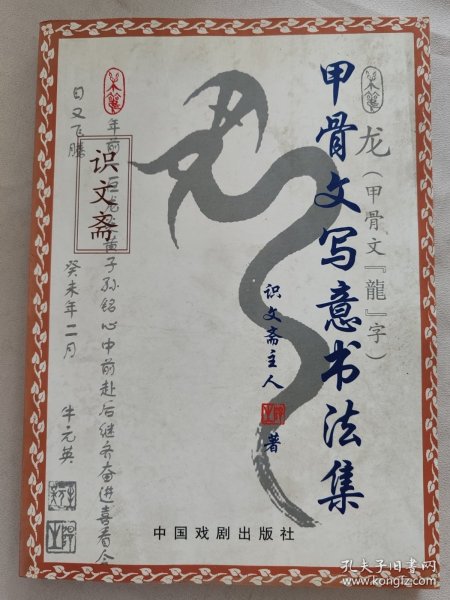 甲骨文写意书法集
龙(甲骨文『龍』字)
识文斋主人
著
识文斋
年前
黄子孙铭心中前赴后继齐奋进喜看今
日又飞腾
癸未年二月
牛元英
中国戏剧出版社
孔夫子旧书网
www.kongfz.com